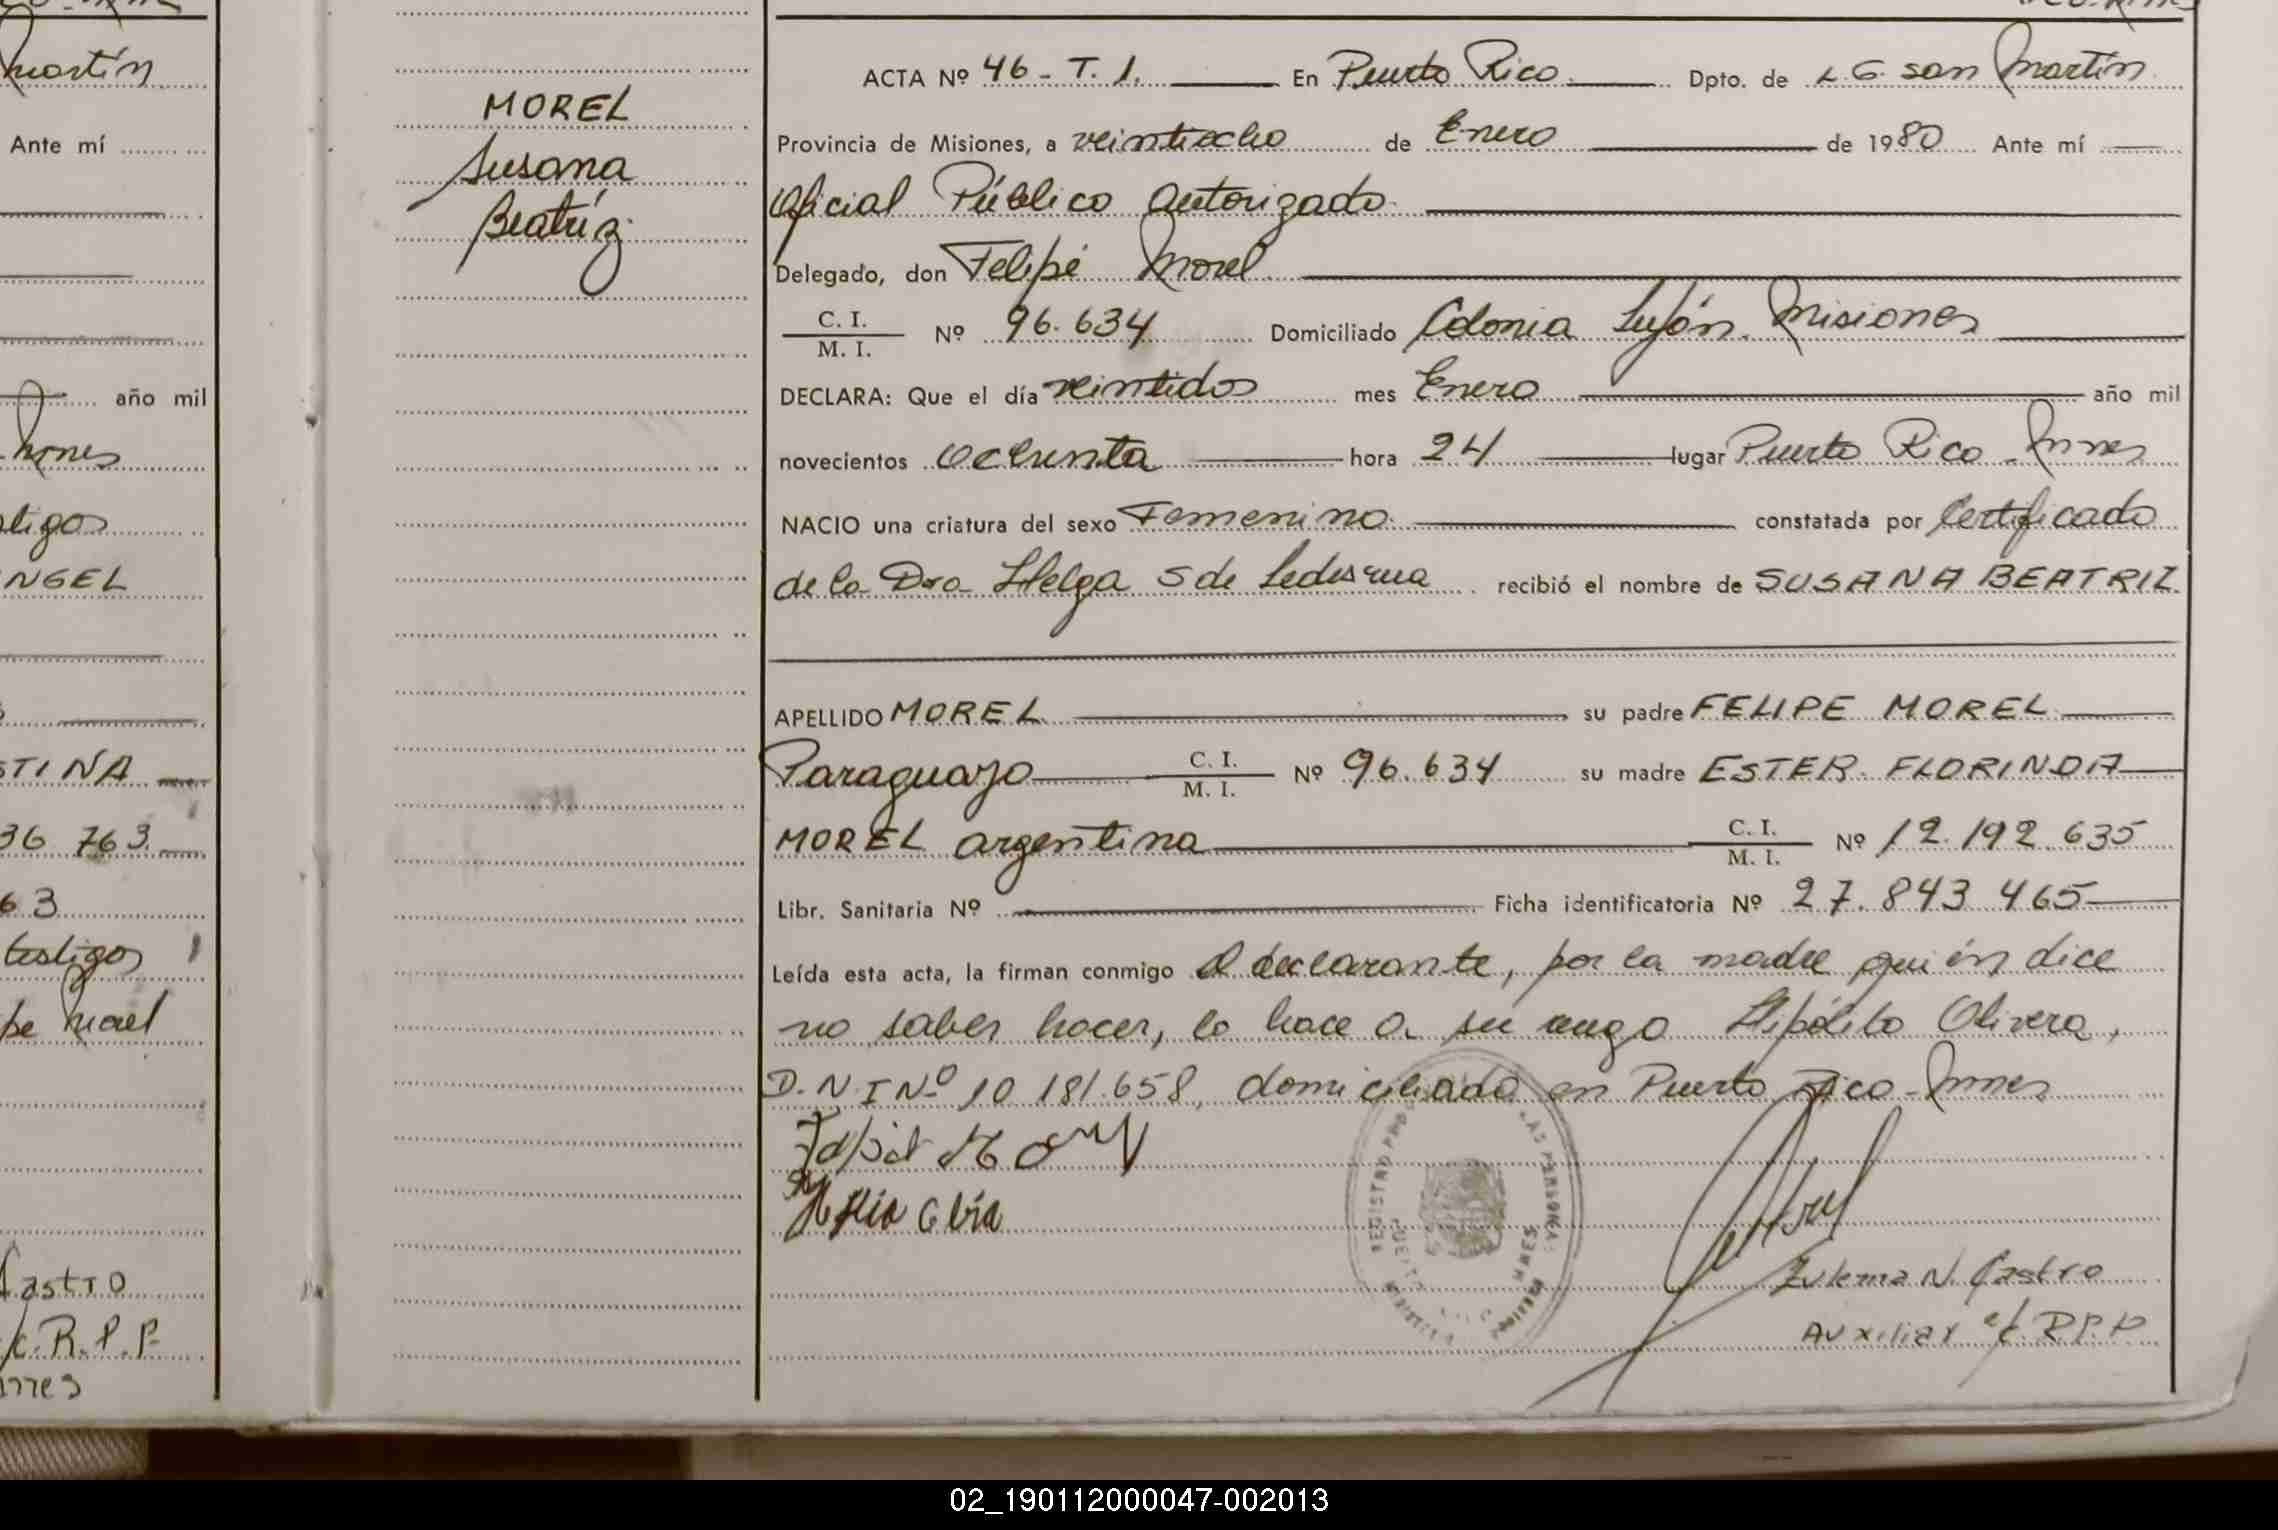 martín
Ante mí
año mil
mnes
NGEL
STINA
36 763
63
testigos
pe Morel
Castro
/c. R. P. P.
MOREL
Susana
Beatríz
ACTA Nº 46 - T. 1. En Puerto Rico. Dpto. de L. G. San Martín
Provincia de Misiones, a veintiocho de Enero de 1980 Ante mí
Oficial Público autorizado
Delegado, don Felipe Morel
C. I. / M. I. Nº 96.634 Domiciliado Colonia Luján. Misiones
DECLARA: Que el día veintidos mes Enero año mil
novecientos ochenta hora 24 lugar Puerto Rico - Mnes
NACIO una criatura del sexo Femenino. constatada por Certificado
de la Dra Helga S de Ledesma recibió el nombre de SUSANA BEATRIZ
APELLIDO MOREL su padre FELIPE MOREL
Paraguayo C. I. / M. I. Nº 96.634 su madre ESTER FLORINDA
MOREL argentina C. I. / M. I. Nº 12.192.635
Libr. Sanitaria Nº Ficha identificatoria Nº 27.843 465
Leída esta acta, la firman conmigo el declarante, por la madre quién dice
no saber hacer, lo hace a su ruego Hipólito Olivera,
D.N.I Nº 10 181.658, domiciliado en Puerto Rico - Mnes
Zulema N. Castro
Auxiliar e/c. R.P.P
02_190112000047-002013